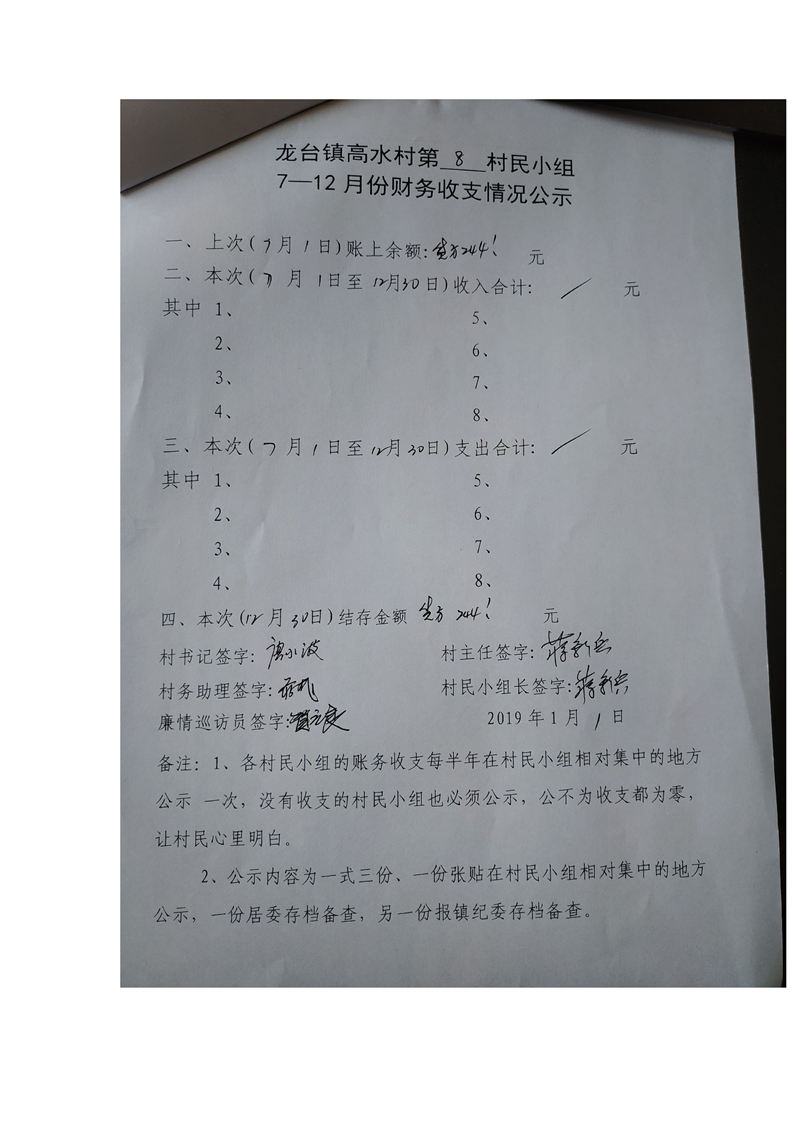 龙台镇高水村第 8 村民小组
7—12月份财务收支情况公示
一、上次(7月1日)账上余额: 244! 元
二、本次(7月1日至12月30日)收入合计: / 元
其中 1、 5、
2、 6、
3、 7、
4、 8、
三、本次(7月1日至12月30日)支出合计: / 元
其中 1、 5、
2、 6、
3、 7、
4、 8、
四、本次(12月30日)结存金额 244! 元
村书记签字: 村主任签字:蒋新兵
村务助理签字: 村民小组长签字:蒋新兵
廉情巡访员签字: 2019年1月1日
备注: 1、各村民小组的账务收支每半年在村民小组相对集中的地方
公示 一次，没有收支的村民小组也必须公示，公不为收支都为零，
让村民心里明白。
2、公示内容为一式三份、一份张贴在村民小组相对集中的地方
公示，一份居委存档备查，另一份报镇纪委存档备查。